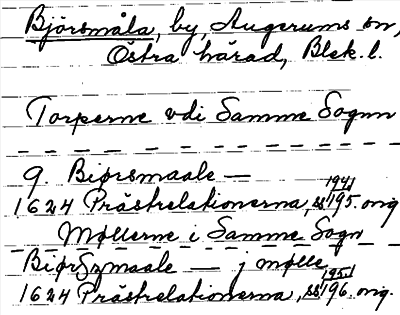 Björsmåla, by, Augerums sn,
Östra härad, Blek. l.
Torperne vdi Samme Sognn
9. Biørsmaale —
1941
1624 Prästrelationerna, ss 195. orig
Møllerne i Samme Sogn
Biørszmaale — j mølle
1951
1624 Prästrelationerna, ss 196. orig.